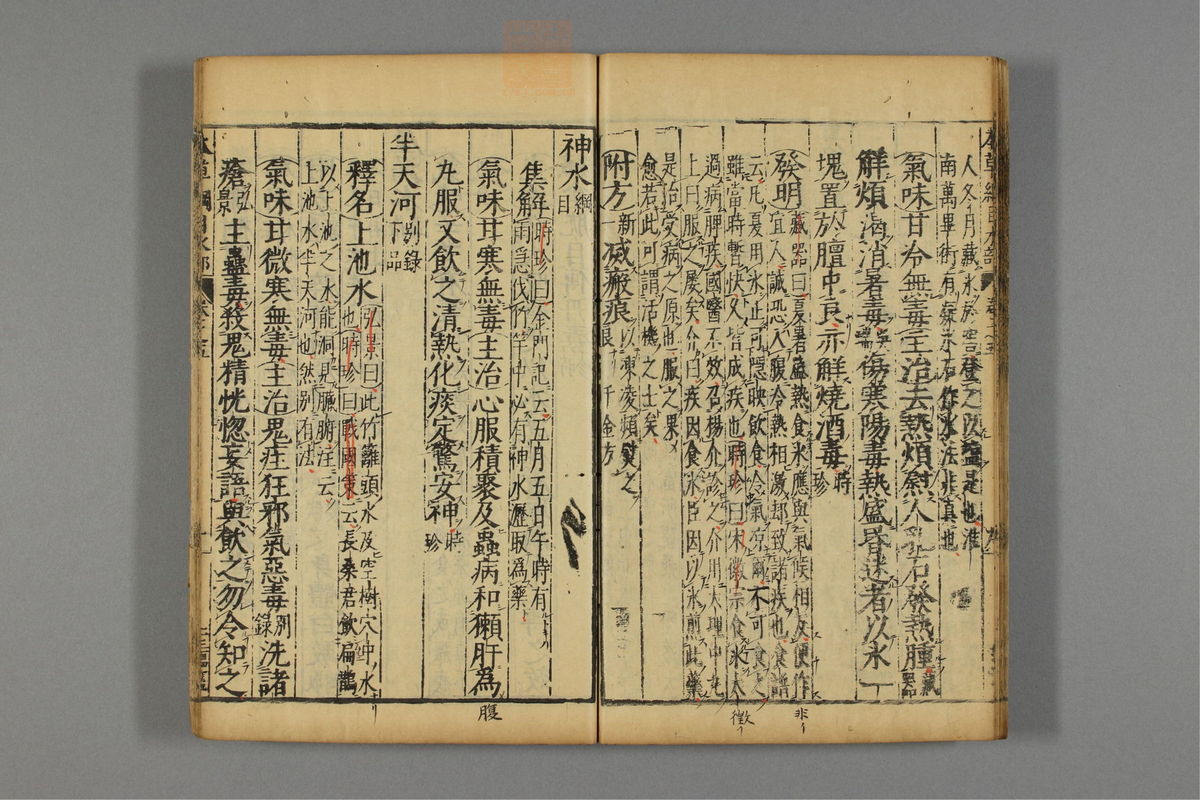 人冬月藏氷於窖登之以鹽是也淮
南萬畢術有凝氷石作氷法非真也
氣味甘冷無毒主治去熱煩熨人乳石發熱腫藏器
解煩渴消暑毒吳瑞傷寒陽毒熱盛昏迷者以氷一
塊置於膻中良亦解燒酒毒時珍
發明藏器曰夏暑盛熱食氷應與氣候相反便作
宜人誠恐入腹冷熱相激却致諸疾也食譜
云凡夏用氷止可隱映飲食令氣凉爾不可食之
雖當時暫快久皆成疾也時珍曰宋徽宗食氷太
過病脾疾國醫不效召楊介診之介用大理中丸
上曰服之屢矣介曰疾因食氷臣因以氷煎此藥
是治受病之原也服之果
愈若此可謂活機之士矣
附方新一滅瘢痕以凍凌頻熨之良 千金方
非イ
徽イ
神水綱目
集解時珍曰金門記云五月五日午時有
雨急伐竹竿中必有神水瀝取為藥
氣味甘寒無毒主治心服積聚及蟲病和獺肝為
丸服又飲之清熱化痰定驚安神時珍
半天河別錄下品
釋名上池水弘景曰此竹籬頭水及空樹穴中水
也時珍曰戰國策云長桑君飲扁鵲
以上池之水能洞見臟腑注云
上池水半天河也然別有法
氣味甘微寒無毒主治鬼疰狂邪氣惡毒別錄洗諸
瘡弘景主蠱毒殺鬼精恍惚妄語與飲之勿令知之
腹